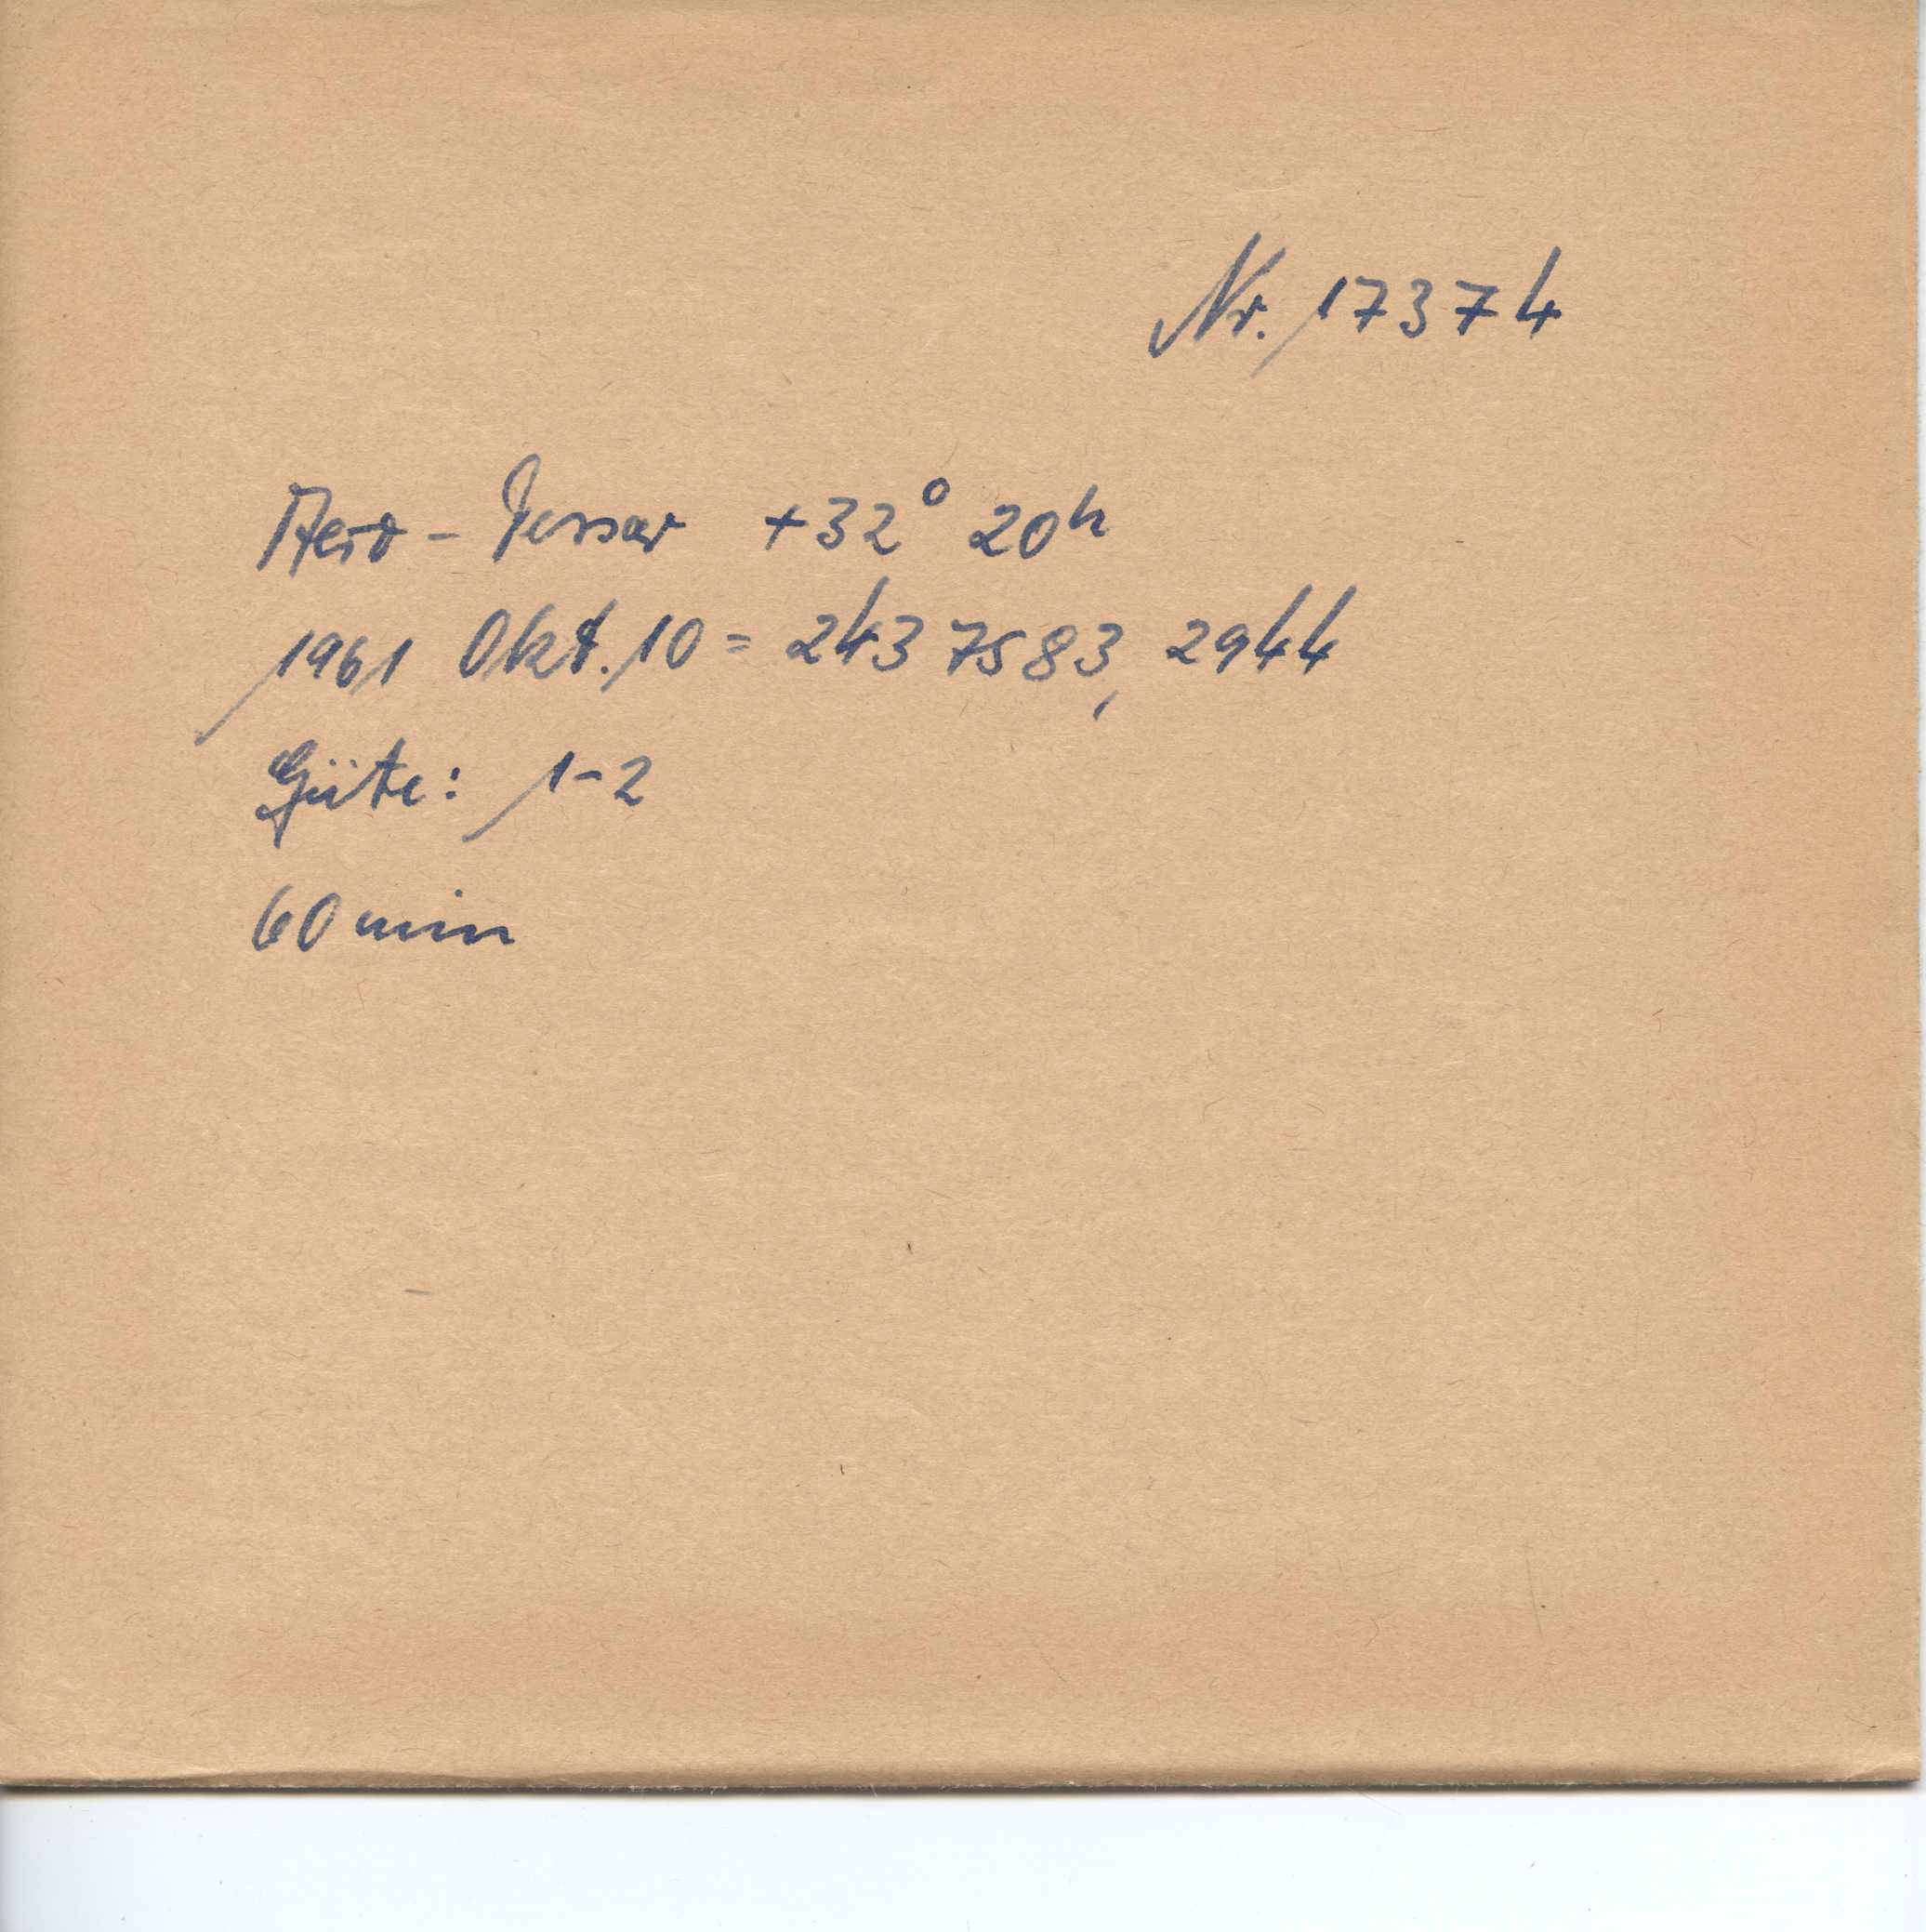 Nr. 17374
Aero - Tessar +32° 20h
1961 Okt. 10 = 243 7583, 2944
Güte: 1-2
60 min